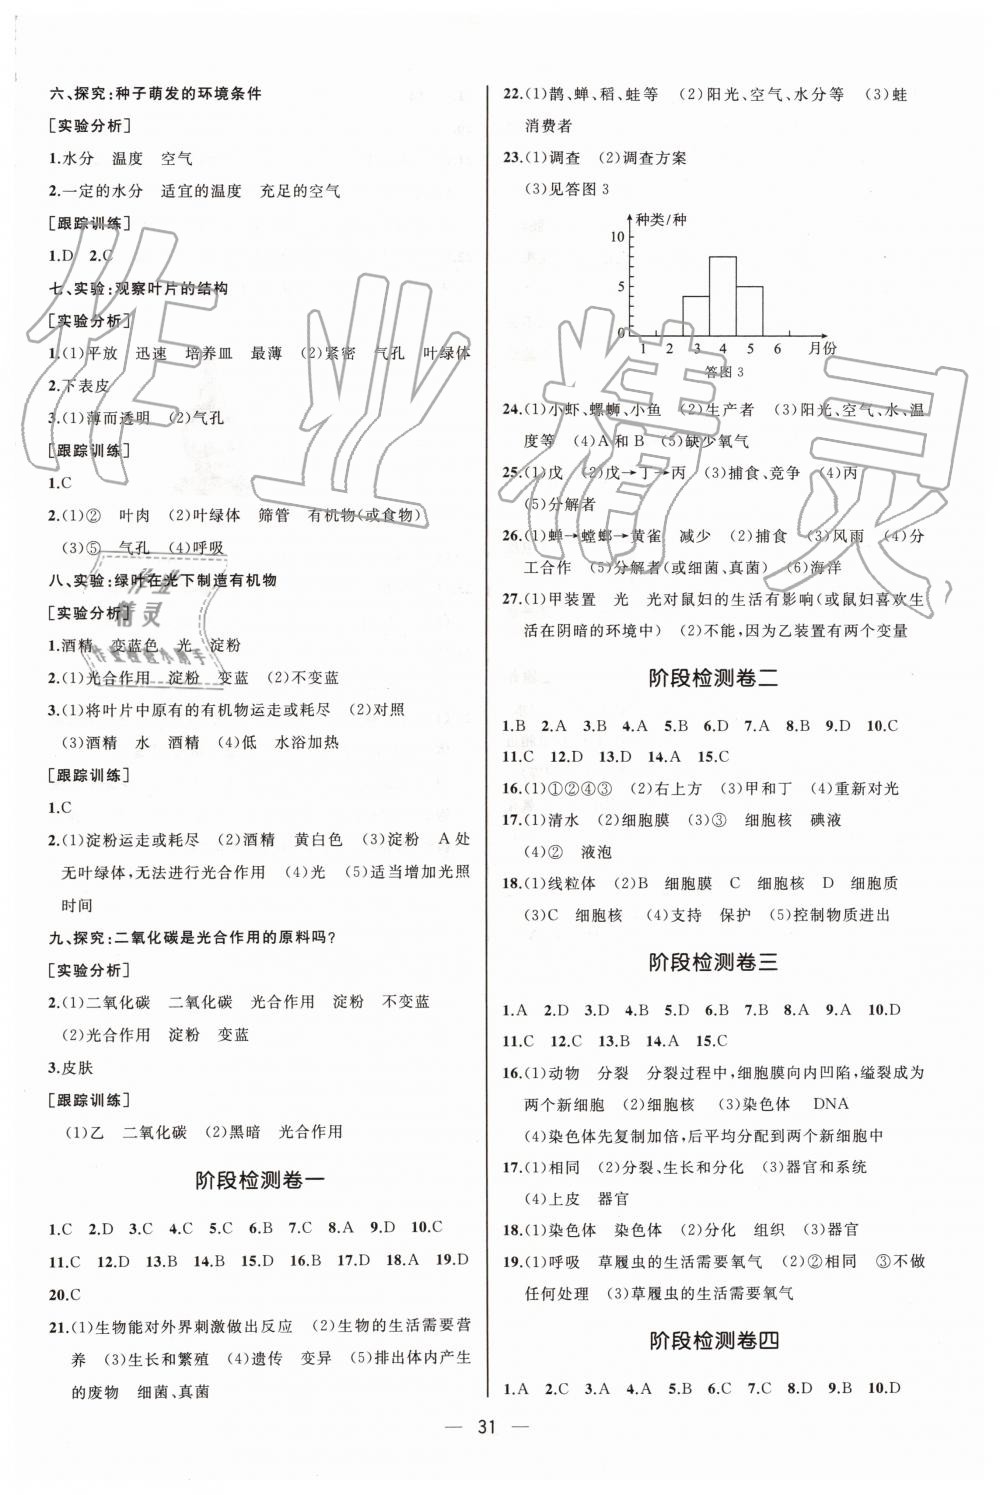 六、探究:种子萌发的环境条件
[实验分析]
1.水分 温度 空气
2.一定的水分 适宜的温度 充足的空气
[跟踪训练]
1.D 2.C
七、实验:观察叶片的结构
[实验分析]
1.(1)平放 迅速 培养皿 最薄 (2)紧密 气孔 叶绿体
2.下表皮
3.(1)薄而透明 (2)气孔
[跟踪训练]
1.C
2.(1)② 叶肉 (2)叶绿体 筛管 有机物(或食物)
(3)⑤ 气孔 (4)呼吸
八、实验:绿叶在光下制造有机物
[实验分析]
1.酒精 变蓝色 光 淀粉
2.(1)光合作用 淀粉 变蓝 (2)不变蓝
3.(1)将叶片中原有的有机物运走或耗尽 (2)对照
(3)酒精 水 酒精 (4)低 水浴加热
[跟踪训练]
1.C
2.(1)淀粉运走或耗尽 (2)酒精 黄白色 (3)淀粉 A处
无叶绿体,无法进行光合作用 (4)光 (5)适当增加光照
时间
九、探究:二氧化碳是光合作用的原料吗?
[实验分析]
2.(1)二氧化碳 二氧化碳 光合作用 淀粉 不变蓝
(2)光合作用 淀粉 变蓝
3.皮肤
[跟踪训练]
(1)乙 二氧化碳 (2)黑暗 光合作用
阶段检测卷一
1.C 2.D 3.C 4.C 5.C 6.B 7.C 8.A 9.D 10.C
11.C 12.D 13.D 14.B 15.D 16.B 17.D 18.A 19.D
20.C
21.(1)生物能对外界刺激做出反应 (2)生物的生活需要营
养 (3)生长和繁殖 (4)遗传 变异 (5)排出体内产生
的废物 细菌、真菌
22.(1)鹊、蝉、稻、蛙等 (2)阳光、空气、水分等 (3)蛙
消费者
23.(1)调查 (2)调查方案
(3)见答图3
种类/种
10
5
0
1 2 3 4 5 6 月份
答图3
24.(1)小虾、螺蛳、小鱼 (2)生产者 (3)阳光、空气、水、温
度等 (4)A和B (5)缺少氧气
25.(1)戊 (2)戊→丁→丙 (3)捕食、竞争 (4)丙
(5)分解者
26.(1)蝉→螳螂→黄雀 减少 (2)捕食 (3)风雨 (4)分
工合作 (5)分解者(或细菌、真菌) (6)海洋
27.(1)甲装置 光 光对鼠妇的生活有影响(或鼠妇喜欢生
活在阴暗的环境中) (2)不能,因为乙装置有两个变量
阶段检测卷二
1.B 2.A 3.B 4.A 5.B 6.D 7.A 8.B 9.D 10.C
11.C 12.D 13.D 14.A 15.C
16.(1)①②④③ (2)右上方 (3)甲和丁 (4)重新对光
17.(1)清水 (2)细胞膜 (3)③ 细胞核 碘液
(4)② 液泡
18.(1)线粒体 (2)B 细胞膜 C 细胞核 D 细胞质
(3)C 细胞核 (4)支持 保护 (5)控制物质进出
阶段检测卷三
1.A 2.D 3.D 4.B 5.C 6.D 7.B 8.A 9.A 10.D
11.C 12.C 13.B 14.A 15.C
16.(1)动物 分裂 分裂过程中,细胞膜向内凹陷,缢裂成为
两个新细胞 (2)细胞核 (3)染色体 DNA
(4)染色体先复制加倍,后平均分配到两个新细胞中
17.(1)相同 (2)分裂、生长和分化 (3)器官和系统
(4)上皮 器官
18.(1)染色体 染色体 (2)分化 组织 (3)器官
19.(1)呼吸 草履虫的生活需要氧气 (2)②相同 ③不做
任何处理 (3)草履虫的生活需要氧气
阶段检测卷四
1.A 2.C 3.A 4.A 5.B 6.C 7.C 8.D 9.B 10.D
— 31 —
作业精灵
作业
精灵
作业检查小助手